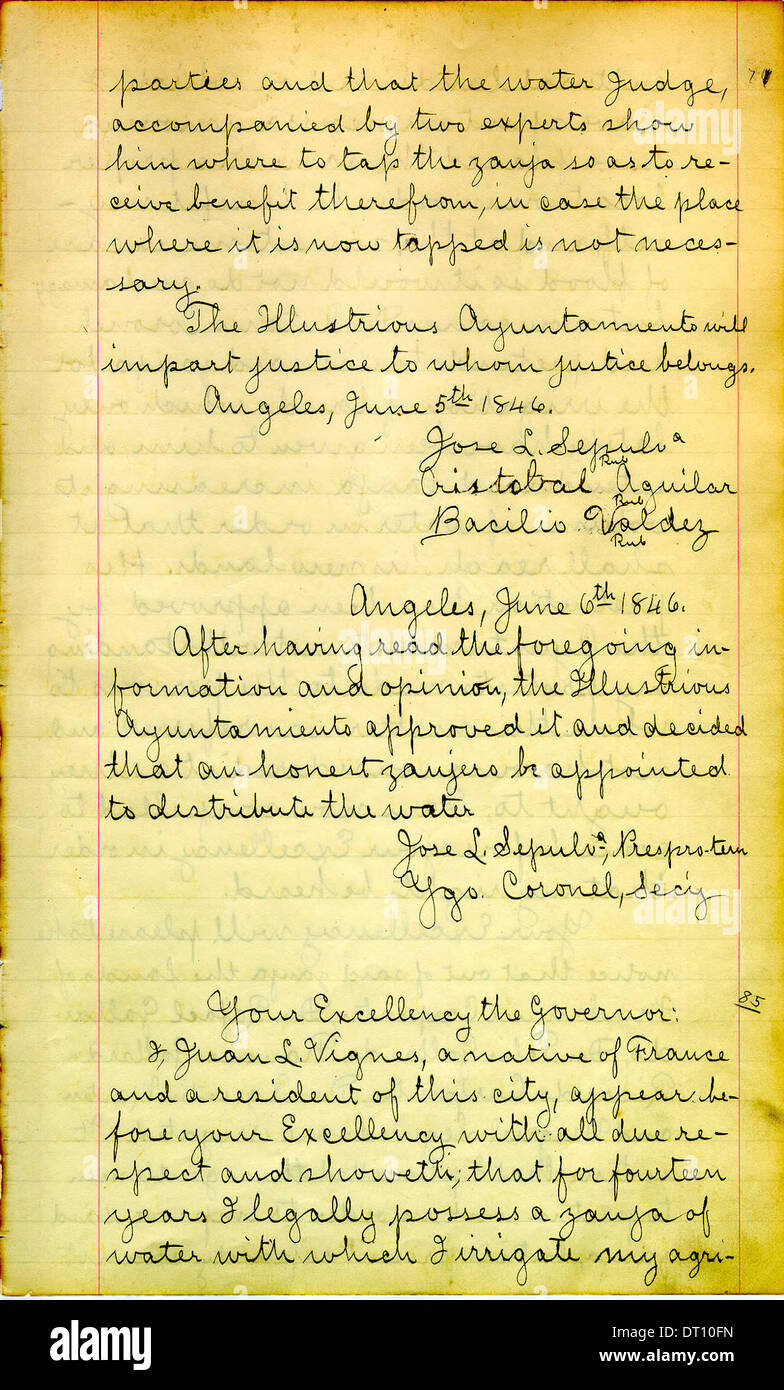 parties and that the water Judge,
accompanied by two experts show
him where to tap the zanja so as to re-
ceive benefit therefrom, in case the place
where it is now tapped is not neces-
sary.
The Illustrious Ayuntamiento will
impart justice to whom justice belongs.
Angeles, June 5th 1846.
Jose L. Sepulvª
Rub
Cristobal Aguilar
Rub
Bacilio Valdez
Rub
Angeles, June 6th 1846.
After having read the foregoing in-
formation and opinion, the Illustrious
Ayuntamiento approved it and decided
that an honest zanjero be appointed
to distribute the water
Jose L. Sepulvª, Pres pro-tem
Ygo. Coronel, Sec'y
85
Your Excellency the Governor:
I, Juan L. Vignes, a native of France
and a resident of this city, appear be-
fore your Excellency with all due re-
spect and showeth; that for fourteen
years I legally possess a zanja of
water with which I irrigate my agri-
alamy
Image ID: DT10FN
www.alamy.com